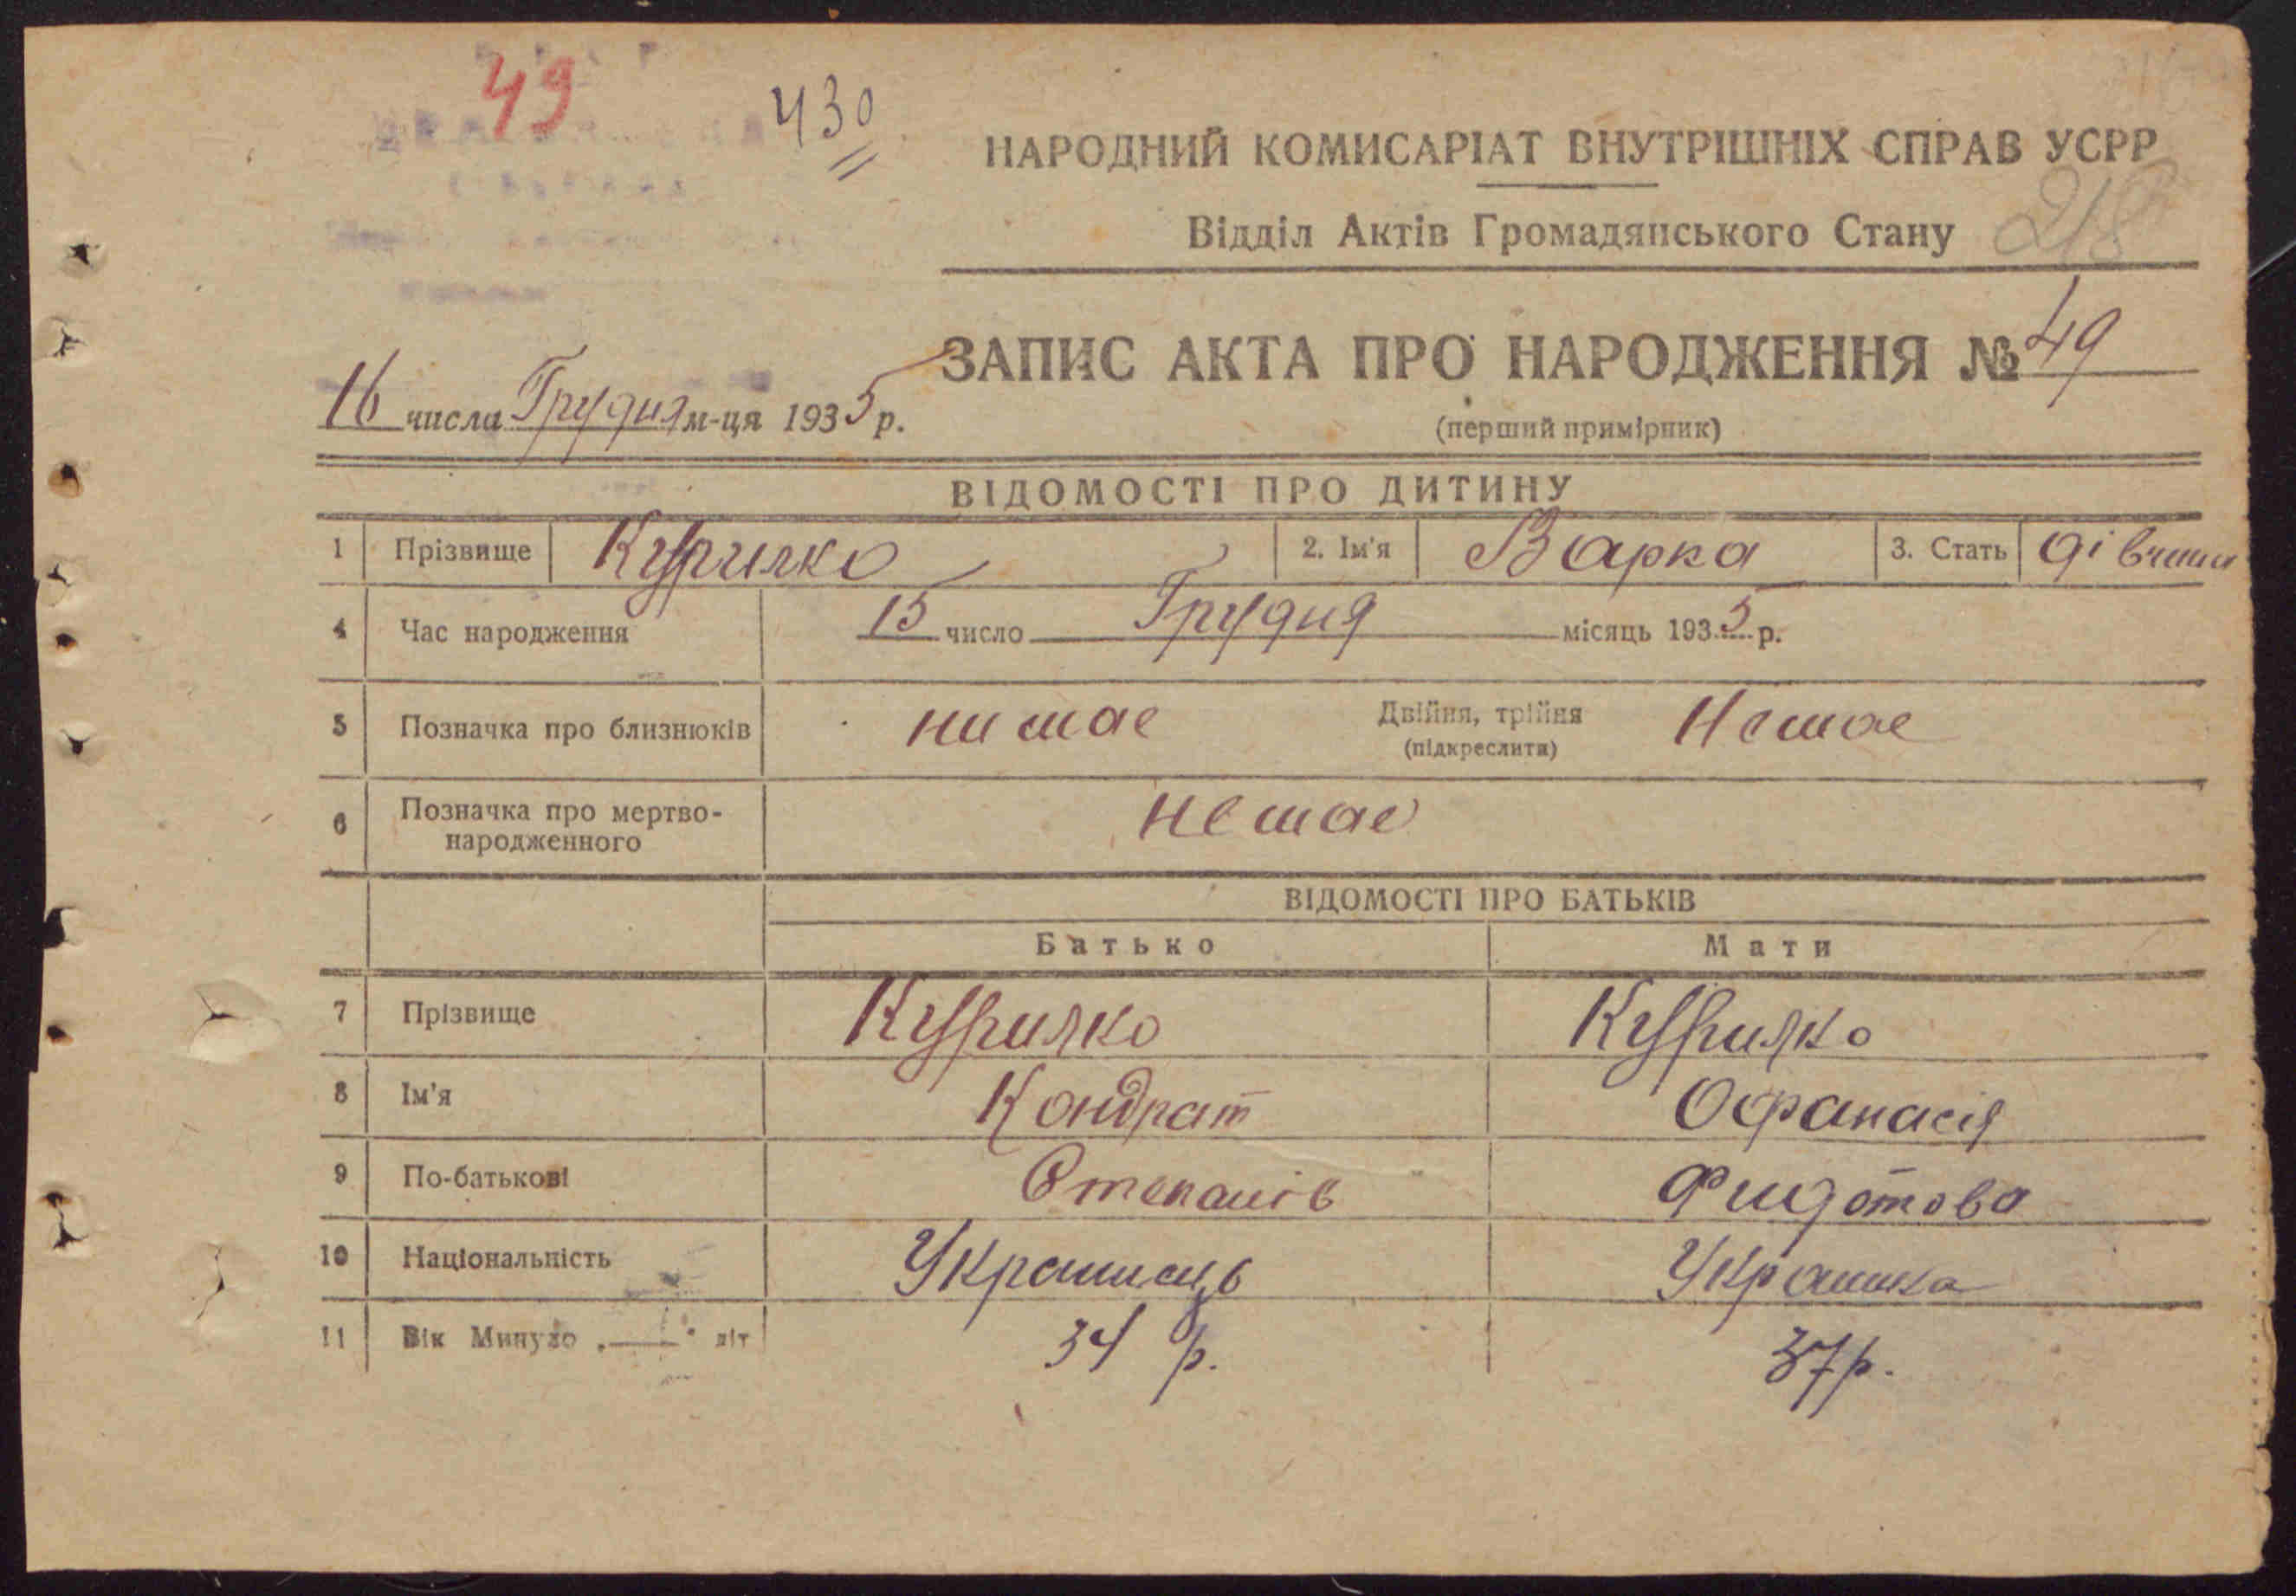 49
430
НАРОДНИЙ КОМИСАРІАТ ВНУТРІШНІХ СПРАВ УСРР
Відділ Актів Громадянського Стану
218
ЗАПИС АКТА ПРО НАРОДЖЕННЯ № 49
16 числа Грудня м-ця 1935 р.
(перший примірник)
ВІДОМОСТІ ПРО ДИТИНУ
1 Прізвище Курилко 2. Ім'я Варка 3. Стать дівчина
4 Час народження 15 число Грудня місяць 1935 р.
5 Позначка про близнюків нимае Двійня, трійня (підкреслити) Немае
6 Позначка про мертво-
народженного немае
ВІДОМОСТІ ПРО БАТЬКІВ
Батько Мати
7 Прізвище Курилко Курилко
8 Ім'я Кондрат Офанасія
9 По-батькові Степанів Фидотова
10 Національність Украинець Украинка
11 Вік Минуло „ — " літ 34 р. 37 р.